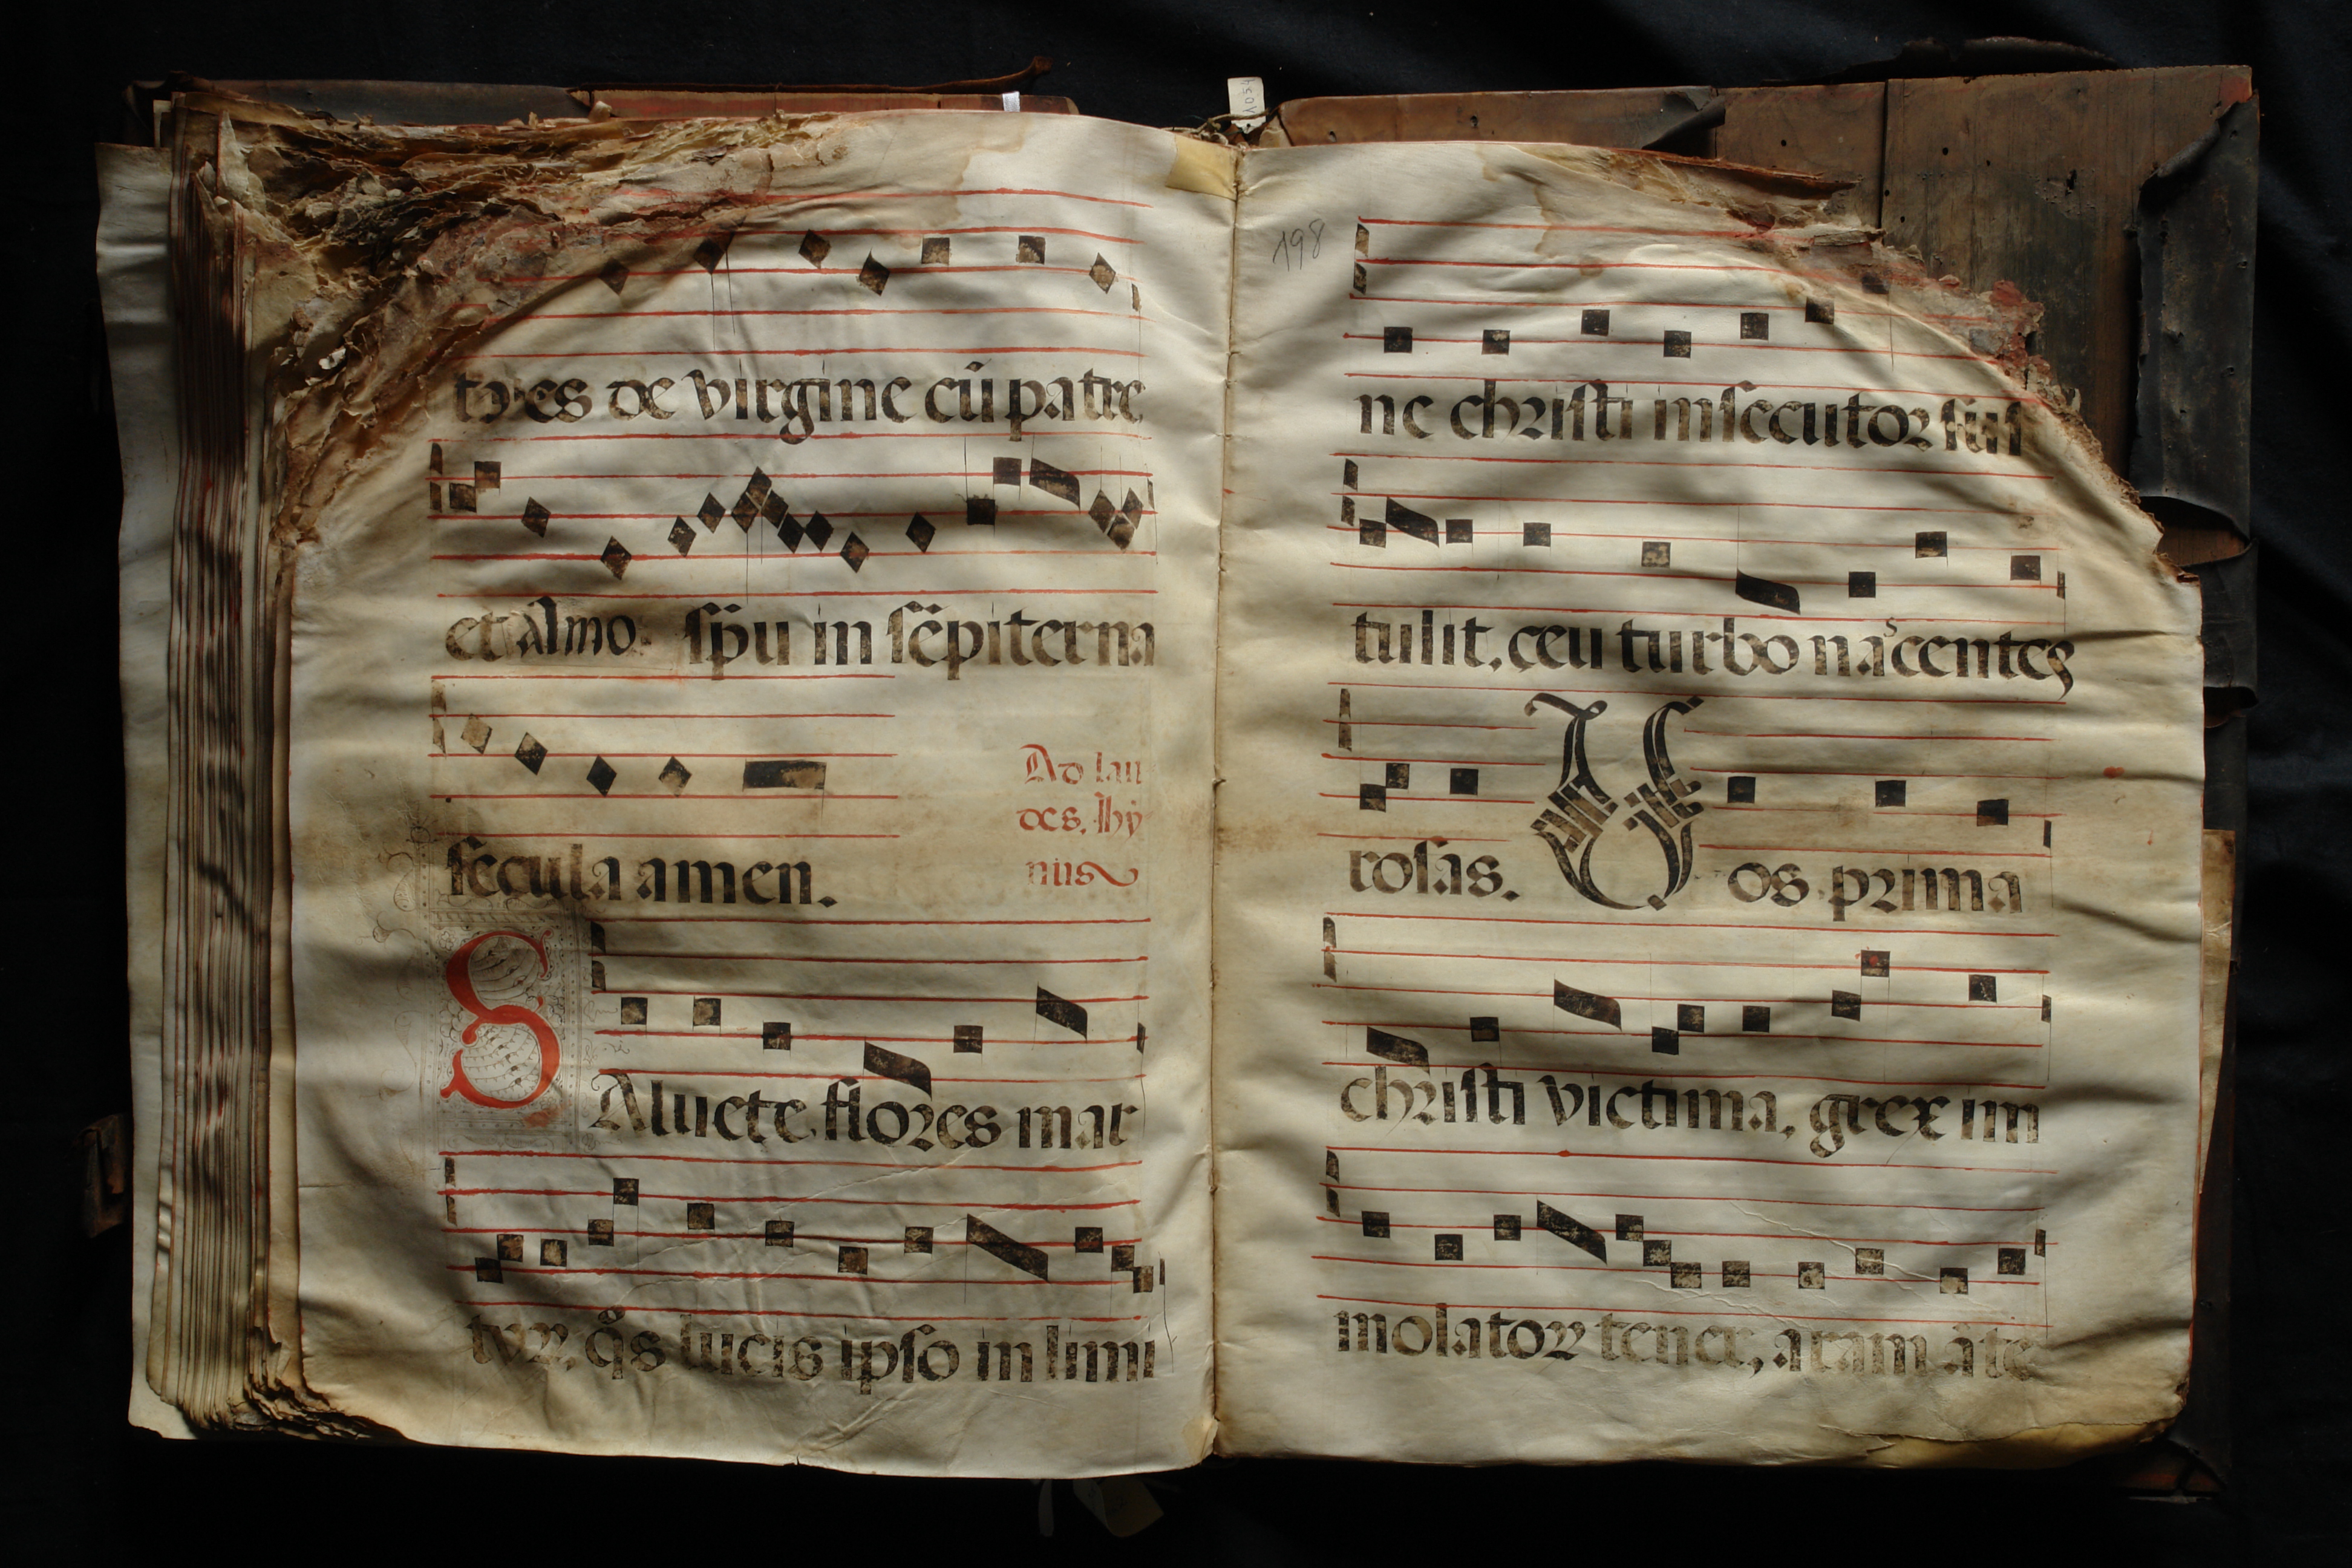 tores de virgine cū patre
et almo. spū in sēpiterna
secula amen.
Ad lau
des. Ihȳ
nus
SAluete flores mar
tyrȝ. q̄s lucis ipso in limi
198
ne christi insecutor sus
tulit. ceu turbo nascentes
rosas. Vos prima
christi victima, grex im
molator tener, aram āte